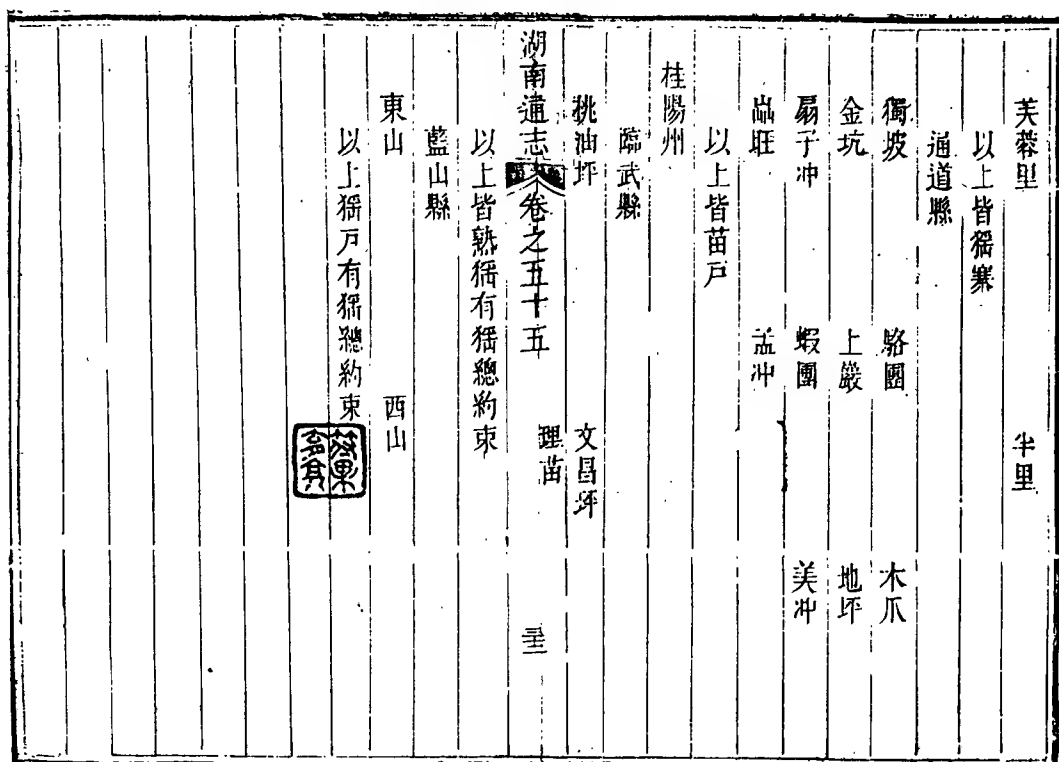 芙蓉里 半里
以上皆猺寨
通道縣
獨坡 駱團 木瓜
金坑 上巖 地坪
扇子冲 蝦團 美冲
旺 孟冲
以上皆苗戸
桂陽州
臨武縣
桃油坪 文昌坪
湖南通志 卷之五十五 理苗
以上皆熟猺有猺總約束
藍山縣
東山 西山
以上猺戸有猺總約束